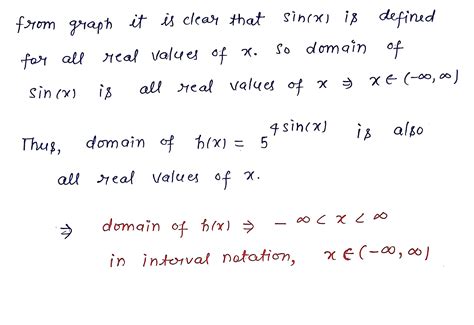 from graph it is clear that sin(x) is defined
for all real values of x. So domain of
sin(x) is all real values of x ⇒ x ∈ (-∞, ∞)
Thus, domain of h(x) = 5^{4 sin(x)} is also
all real values of x.
⇒ domain of h(x) ⇒ - ∞ < x < ∞
in interval notation, x ∈ (-∞, ∞)